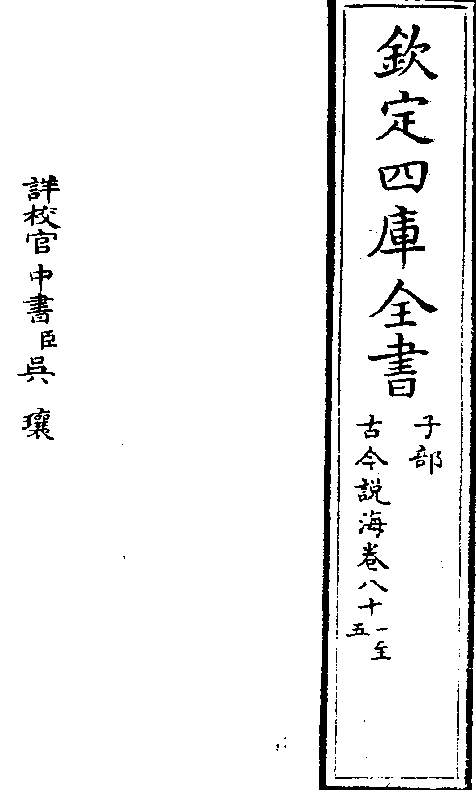 欽定四庫全書
子部
古今説海卷八十一至
五
詳校官中書臣吳瓖